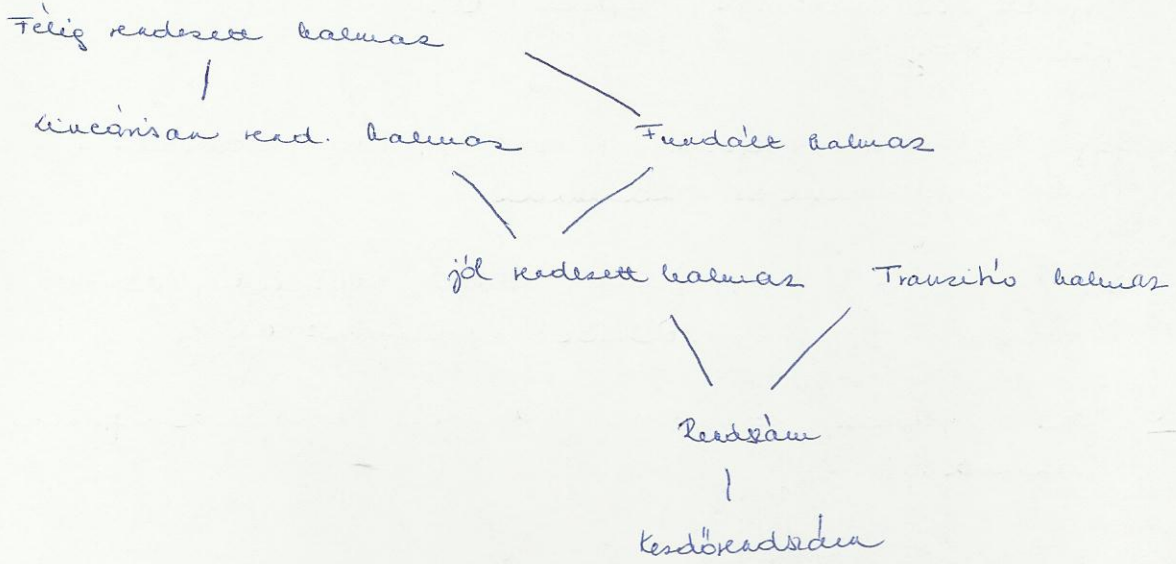 Félig rendezett halmaz
Lineárisan rend. halmaz Fundált halmaz
jól rendezett halmaz Tranzitív halmaz
Rendszám
Kezdőrendszám